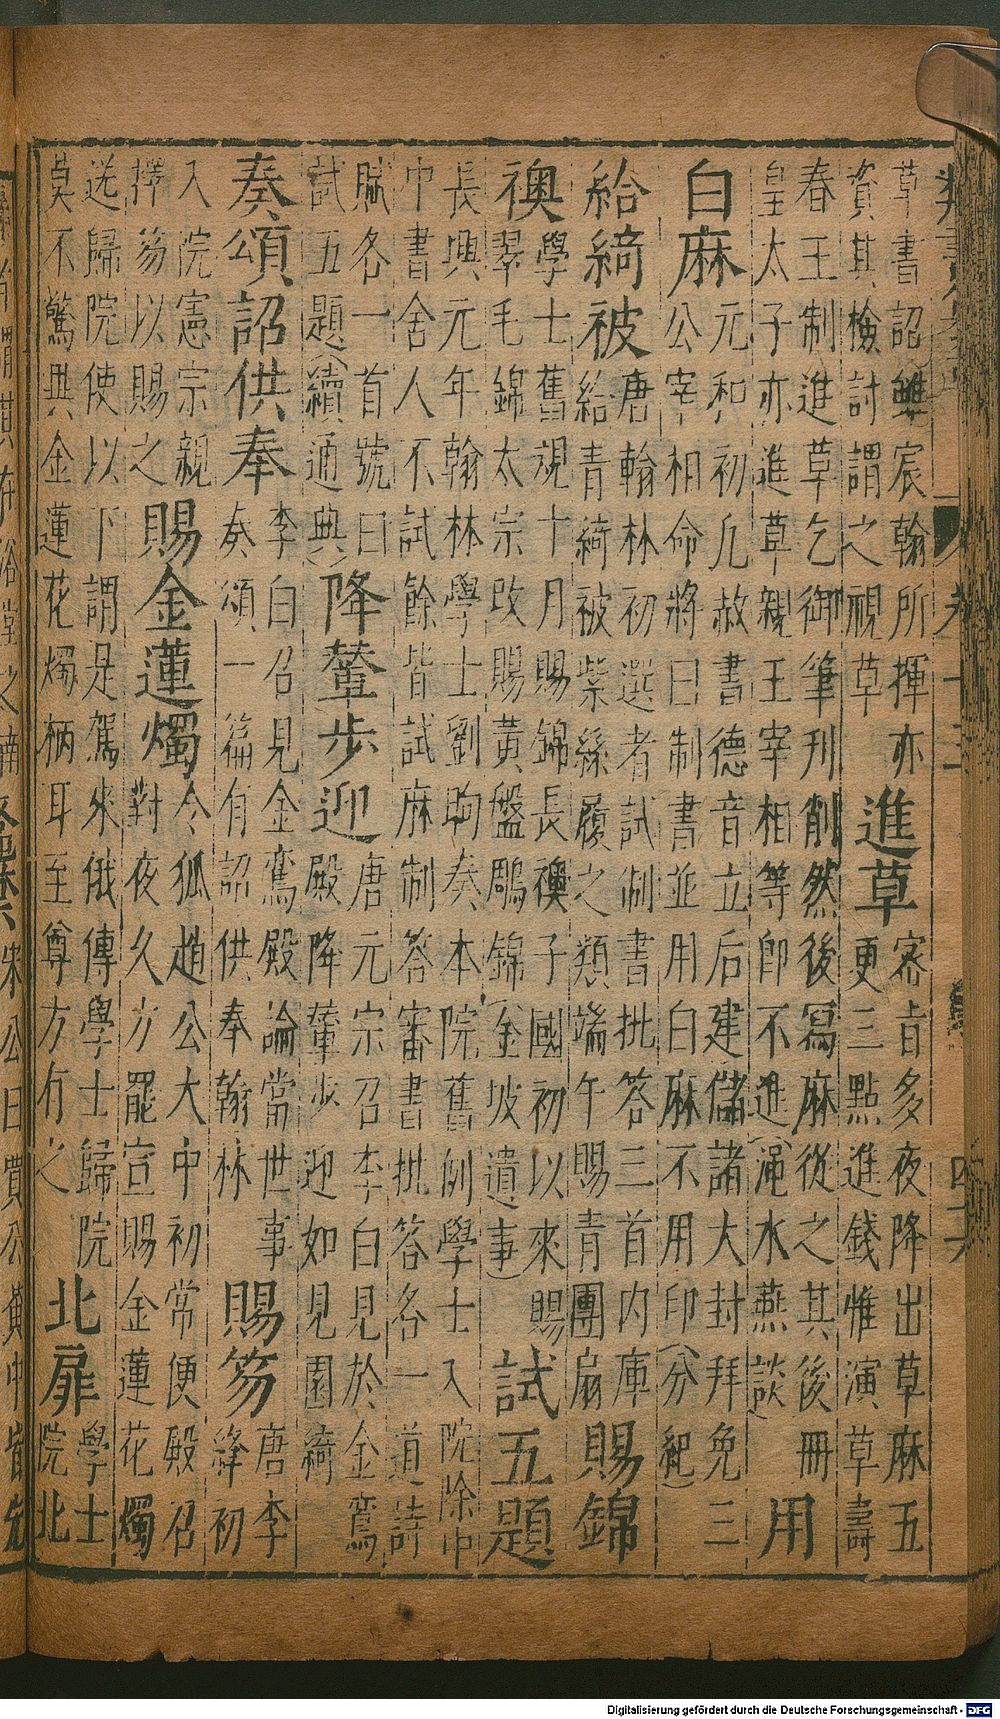 草書詔雖宸翰所揮亦
資其檢討謂之視草
進草
密旨多夜降出草麻五
更三點進錢惟演草壽
春王制進草乞御筆刋削然後寫麻從之其後冊
皇太子亦進草親王宰相等即不進(澠水燕談)
用
白麻
元和初凢赦書德音立后建儲諸大封拜免三
公宰相命將曰制書並用白麻不用印(分紀)
給綺被
唐翰林初選者試制書批答三首内庫
給青綺被紫絲履之類端午賜青團扇
賜錦
襖
學士舊規十月賜錦長襖子國初以來賜
翠毛錦太宗改賜黃盤鵰錦(金坡遺事)
試五題
長興元年翰林學士劉昫奏本院舊例學士入院除中
中書舍人不試餘皆試麻制答審書批答各一道詩
賦各一首號曰
試五題(續通典)
降輦步迎
唐元宗召李白見於金鸞
殿降輦步迎如見園綺
奏頌詔供奉
李白召見金鸞殿論當世事
奏頌一篇有詔供奉翰林
賜笏
唐李
絳初
入院憲宗親
擇笏以賜之
賜金蓮燭
令狐趙公大中初常便殿召
對夜久方罷宣賜金蓮花燭
送歸院使以下謂是駕來俄傳學士歸院
莫不驚異金蓮花燭柄耳至尊方有之
北扉
學士
院北
Digitalisierung gefördert durch die Deutsche Forschungsgemeinschaft - DFG